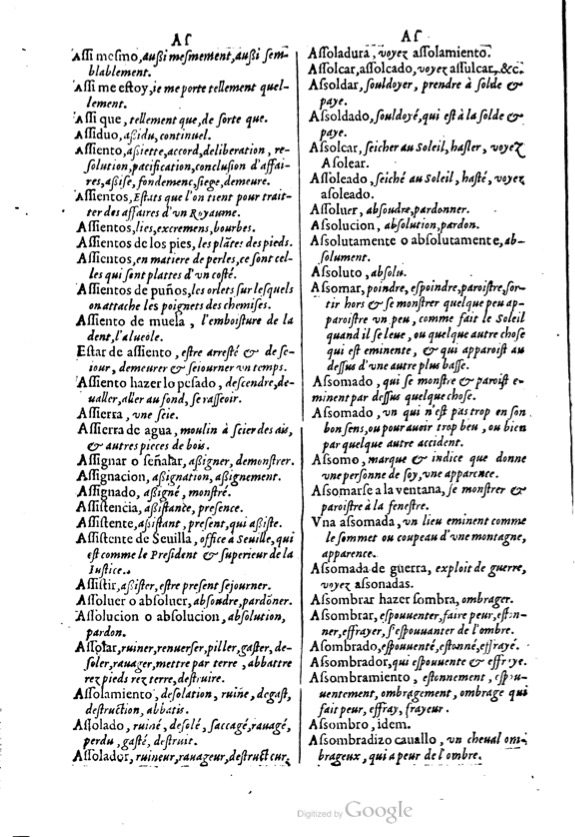 AS
Aſſi meſmo, auſſi meſmement, auſſi ſem-
blablement.
Aſſi me eſtoy, ie me porte tellement quel-
lement.
Aſſi que, tellement que, de ſorte que.
Aſſiduo, aßidu, continuel.
Aſſiento, aßiette, accord, deliberation, re-
ſolution, pacification, concluſion d'affai-
res, aßiſe, fondemenc, ſiege, demeure.
Aſſientos, Eſtats que l'on tient pour trait-
ter des affaires d'vn Royaume.
Aſſientos, lies, excremens, bourbes.
Aſſientos de los pies, les plãtes des pieds.
Aſſientos, en matiere de perles, ce ſont cel-
les qui ſont plattes d'vn coſté.
Aſſientos de puños, les orlets ſur leſquels
on attache les poignets des chemiſes.
Aſſiento de muela, l'emboiſture de la
dent, l'alueole.
Eſtar de aſſiento, eſtre arreſté & de ſe-
iour, demeurer & ſeiourner vn temps.
Aſſiento hazer lo peſado, deſcendre, de-
ualler, aller au fond, ſe raſſeoir.
Aſſierra, vne ſcie.
Aſſierra de agua, moulin à ſcier des ais,
& autres pieces de bois.
Aſſignar o ſeñalar, aßigner, demonſtrer.
Aſſignacion, aßignation, aßignement.
Aſſignado, aßigné, monſtré.
Aſſiſtencia, aßiſtance, preſence.
Aſſiſtente, aßiſtant, preſent, qui aßiſte.
Aſſiſtente de Seuilla, office à Seuille, qui
eſt comme le Preſident & ſuperieur de la
Iuſtice.
Aſſiſtir, aßiſter, eſtre preſent ſejourner.
Aſſoluer o abſoluer, abſoudre, pardõner.
Aſſolucion o abſolucion, abſolution,
pardon.
Aſſolar, ruiner, renuerſer, piller, gaſter, de-
ſoler, rauager, mettre par terre, abbattre
rez pieds rez terre, deſtruire.
Aſſolamiento, deſolation, ruine, degaſt,
deſtruction, abbatis.
Aſſolado, ruiné, deſolé, ſaccagé, rauagé,
perdu, gaſté, deſtruit.
Aſſolador, ruineur, rauageur, deſtructeur.
AS
Aſſoladura, voyez aſſolamiento.
Aſſolcar, aſſolcado, voyez aſſulcar, &c.
Aſſoldar, ſouldoyer, prendre à ſolde &
paye.
Aſſoldado, ſouldoyé, qui eſt à la ſolde &
paye.
Aſſolcar, ſeicher au Soleil, haſler, voyez
Aſolear.
Aſſoleado, ſeiché au Soleil, haſté, voyez
aſoleado.
Aſſoluer, abſoudre, pardonner.
Aſſolucion, abſolution, pardon.
Aſſolutamente o abſolutamente, ab-
ſolument.
Aſſoluto, abſolu.
Aſſomar, poindre, eſpoindre, paroiſtre, ſor-
tir hors & ſe monſtrer quelque peu ap-
paroiſtre vn peu, comme fait le Soleil
quand il ſe leue, ou quelque autre choſe
qui eſt eminente, & qui apparoiſt au
deſſus d'vne autre plus baſſe.
Aſſomado, qui ſe monſtre & paroiſt e-
minent par deſſus quelque choſe.
Aſſomado, vn qui n'eſt pas trop en ſon
bon ſens, ou pour auoir trop beu, ou bien
par quelque autre accident.
Aſſomo, marque & indice que donne
vne perſonne de ſoy, vne apparence.
Aſſomarſe a la ventana, ſe monſtrer &
paroiſtre à la feneſtre.
Vna aſſomada, vn lieu eminent comme
le ſommet ou coupeau d'vne montagne,
apparence.
Aſſomada de guerra, exploit de guerre,
voyez aſſonadas.
Aſſombrar hazer ſombra, ombrager.
Aſſombrar, eſpouuenter, faire peur, eſton-
ner, effrayer, s'eſpouuanter de l'ombre.
Aſſombrado, eſpouuenté, eſtonné, effrayé.
Aſſombrador, qui eſpouuente & effraye.
Aſſombramiento, eſtonnement, eſpou-
uentement, ombragement, ombrage qui
fait peur, effray, frayeur.
Aſſombro, idem.
Aſſombradizo cauallo, vn cheual om-
brageux, qui a peur de l'ombre.
Digitized by Google